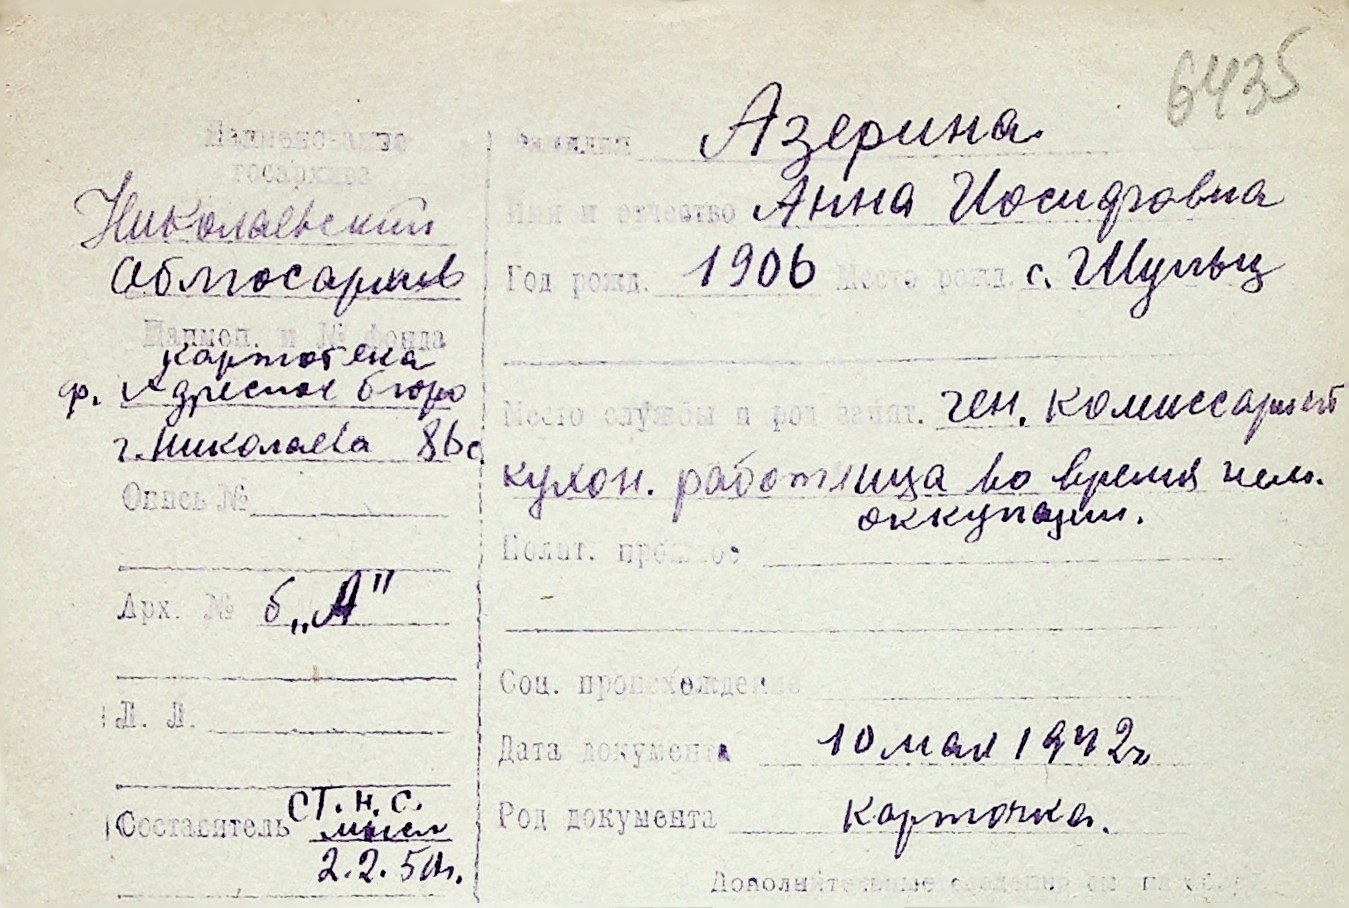 6435
Наименование
госархива
Николаевский
Облгосархив
Наимен. и № фонда
картотека
ф. Адресное бюро
г. Николаева 86с
Опись №
Арх. № б „А"
Л. Л.
Составитель ст. н. с.
2.2.50г.
Фамилия Азерина
Имя и отчество Анна Иосифовна
Год рожд. 1906 Место рожд. с. Шульц
Место службы и род занят. ген. комиссариат
кухон. работница во время нем.
оккупации.
Полит. прошлое
Соц. происхождение
Дата документа 10 мая 1942г.
Род документа карточка.
Дополнительные сведения см. на